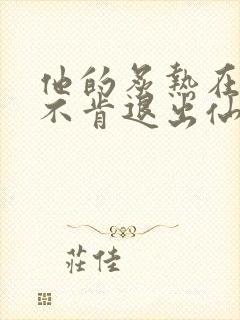 他的炙热在
不肯退出仙
莊佳